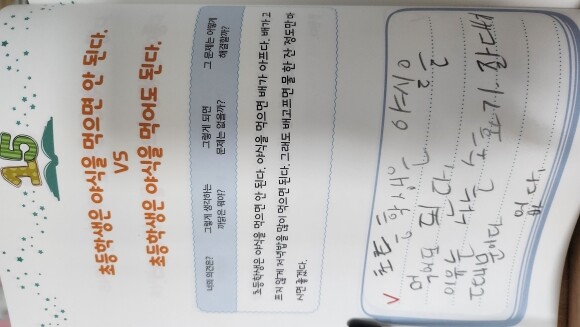 15
초등학생은 야식을 먹으면 안 된다.
VS
초등학생은 야식을 먹어도 된다.
너의 의견은?
그렇게 생각하는
까닭은 뭐야?
그렇게 되면
문제는 없을까?
그 문제는 어떻게
해결할까?
초등학생은 야식을 먹으면 안 된다. 야식을 먹으면 배가 아프다. 배가 고
프지 않게 저녁밥을 많이 먹으면 된다. 그래도 배고프면 물 한 잔 정도만 마
시면 좋겠다.
V 초등학생은 야식을
먹어도 된다.
이유는 나는
때문이다
없다.